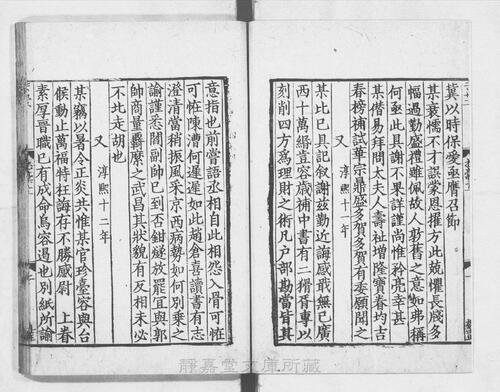 冀以時保愛亟膺召節
某衰懦不才誤蒙恩擢方此兢懼長牋多
幅過勤盛禮雖佩故人敦舊之意如弗稱
何亟此具謝不果詳謹尚惟矜亮幸甚
某僭易拜問太夫人壽祉增隆寶眷均吉
春榜補試華宗鼎盛多賀多賀有委願聞之
又 淳熙十一年
某比已具記叙謝茲勤近誨感戢無已廣
西十萬緡豈容裁補中書有二胥專以
刻削四方爲理財之術凡戶部勘當皆其
意指也前嘗語丞相自此相怨入骨可恠
可恠陳漕何遲遲如此趙倉喜讀書有志
澄清當稍振風采京西病勢如何別乗之
諭謹悉關副帥已到否鉗燧放罷宜與郭
帥商量麼之武昌其狀貌有反相未必
不北走胡也
又 淳熙十二年
某竊以暑令正炎共惟某官珍臺容與台
候動止萬福特枉誨存不勝感尉 上眷
素厚晉職已有成命烏容遏也別紙所諭
靜嘉堂文庫所藏